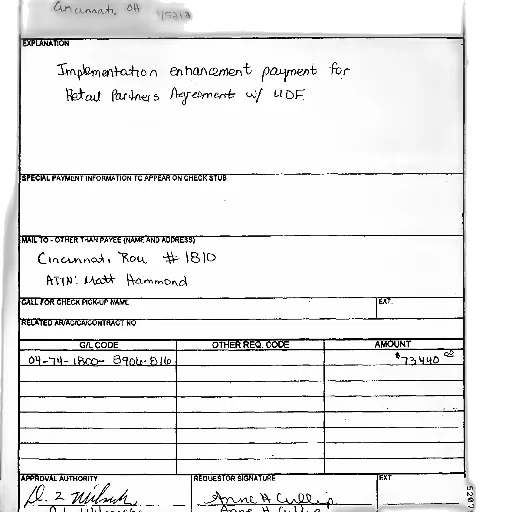 Cincinnati, OH 45212
EXPLANATION
Implementation enhancement payment for
Retail Partners Agreement w/ UDF.
SPECIAL PAYMENT INFORMATION TO APPEAR ON CHECK STUB
MAIL TO - OTHER THAN PAYEE (NAME AND ADDRESS)
Cincinnati ROU # 1810
ATTN: Matt Hammond
CALL FOR CHECK PICK-UP NAME EXT.
RELATED AR/AC/CA/CONTRACT NO
G/L CODE OTHER REQ. CODE AMOUNT
04-74-1800- 8906-816 $73440 00
APPROVAL AUTHORITY REQUESTOR SIGNATURE EXT
Anne H Cullip
Anne H Cullip